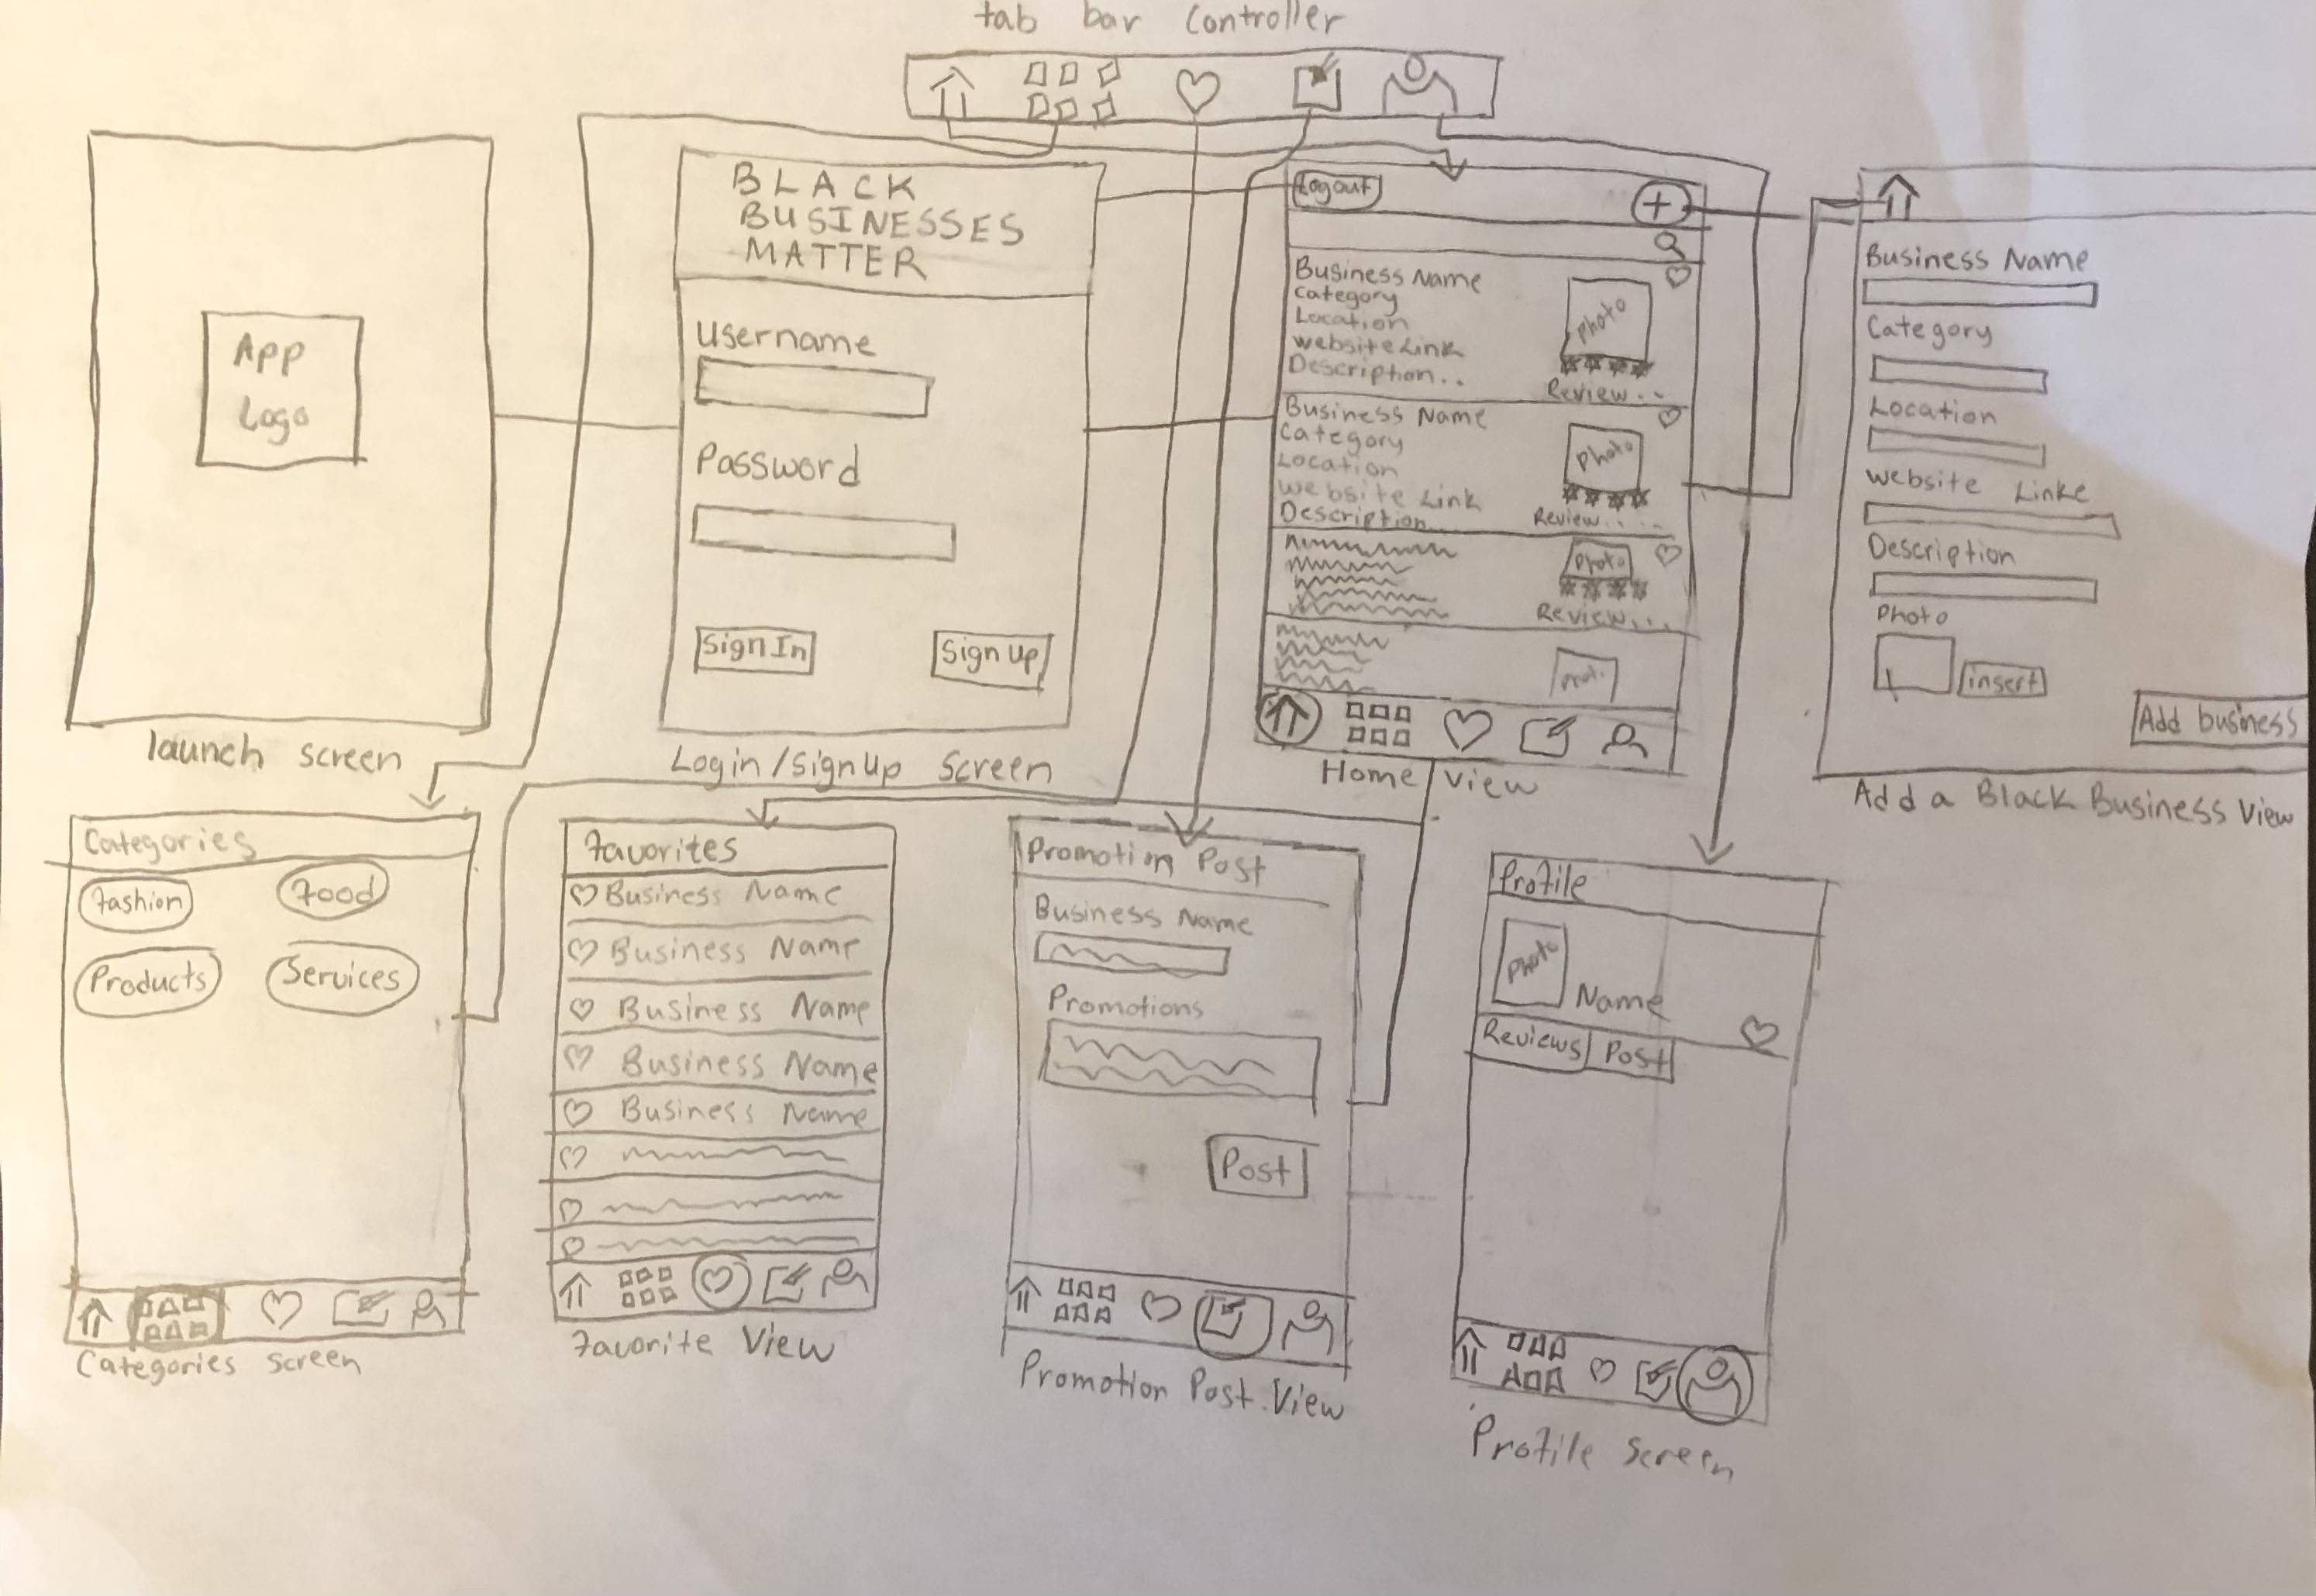 tab bar controller
App
Logo
launch screen
BLACK
BUSINESSES
MATTER
Username
Password
Sign In
Sign Up
Login/SignUp Screen
Logout
+
Business Name
Category
Location
website Link
Description..
Photo
Review..
Business Name
Category
Location
Website Link
Description...
Photo
Review.....
Photo
Review....
Home View
Business Name
Category
Location
Website Linke
Description
Photo
insert
Add business
Add a Black Business View
Categories
Fashion
Food
Products
Services
Categories screen
Favorites
Business Name
Business Name
Business Name
Business Name
Business Name
Favorite View
Promotion Post
Business Name
Promotions
Post
Promotion Post View
Profile
Photo
Name
Reviews
Post
Profile Screen